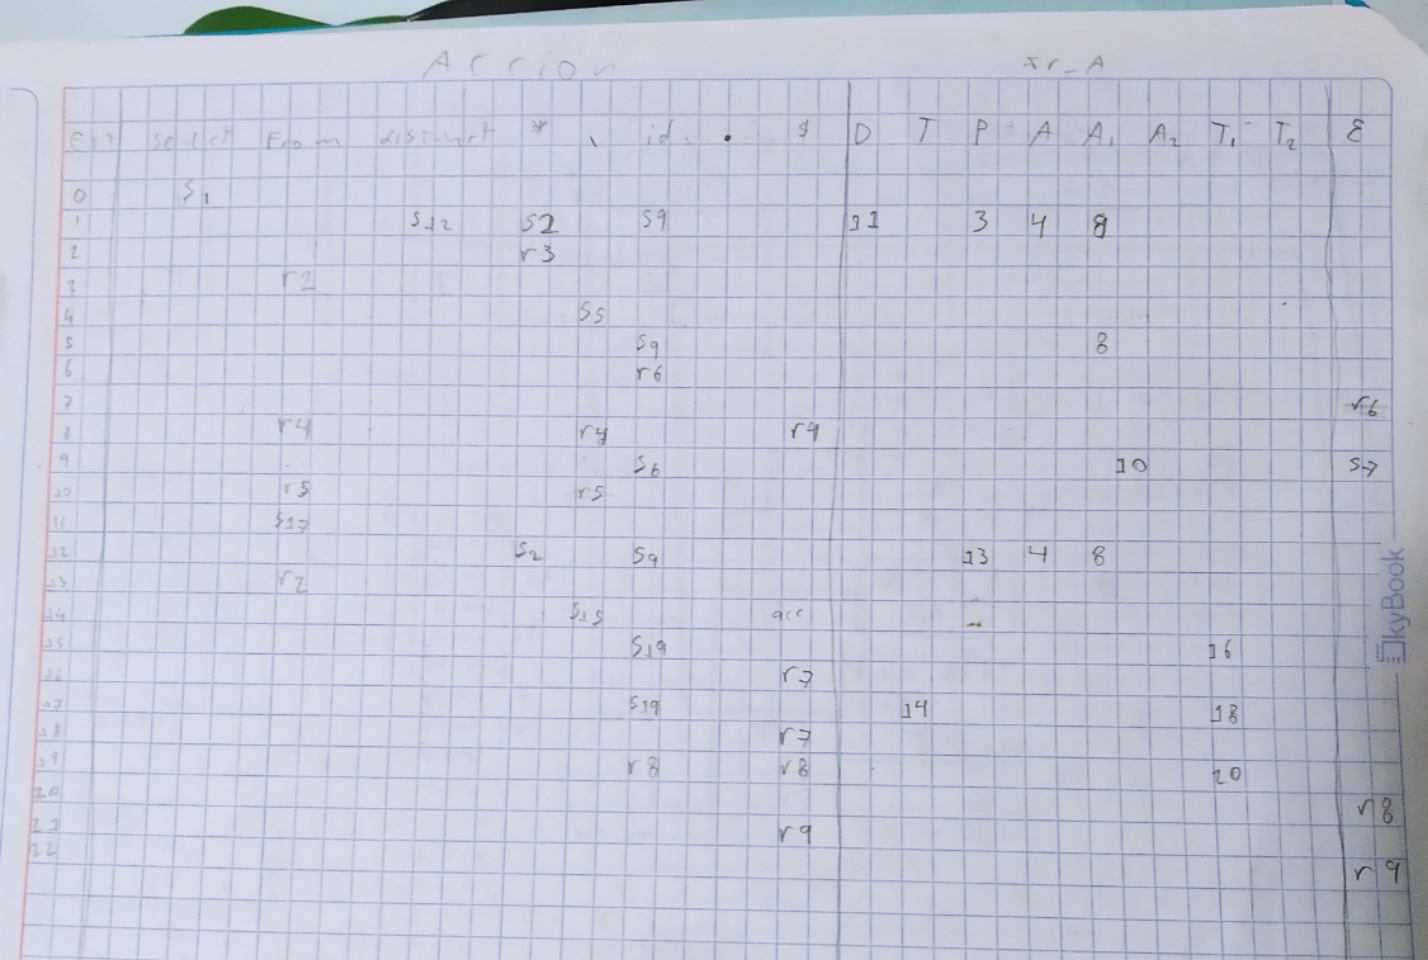 Accion Ir_A
Est select From distinct * , id . $ D T P A A1 A2 T1 T2 ε
0 S1
1 S12 S2 S9 11 3 4 8
2 r3
3 r2
4 S5
5 S9 8
6 r6
7 r6
8 r4 r4 r4
9 S6 10 S7
10 r5 r5
11 S17
12 S2 S9 13 4 8
13 r2
14 S15 acc
15 S19 16
16 r7
17 S19 14 18
18 r7
19 r8 r8 20
20 r8
21 r9
22 r9
SkyBook